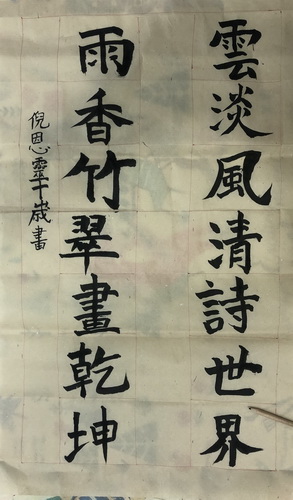 雲淡風清詩世界
雨香竹翠畫乾坤
倪恩靈十歲書